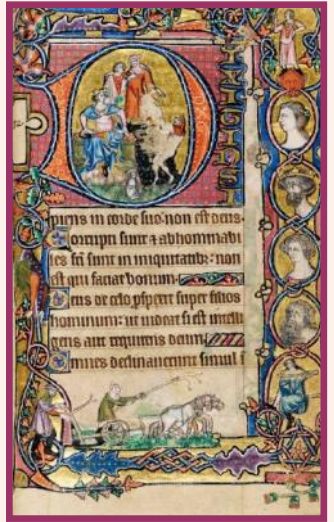 D
piens in corde suo: non est deus·
Corrupti sunt ⁊ abhominabi
les fc̄i sunt in iniquitatib: non
est qui faciat bonum·
Deus de celo ꝓspexit super filios
hominum: ut uideat si est intelli
gens aut requirens deum·
Omnes declinauerunt simul i